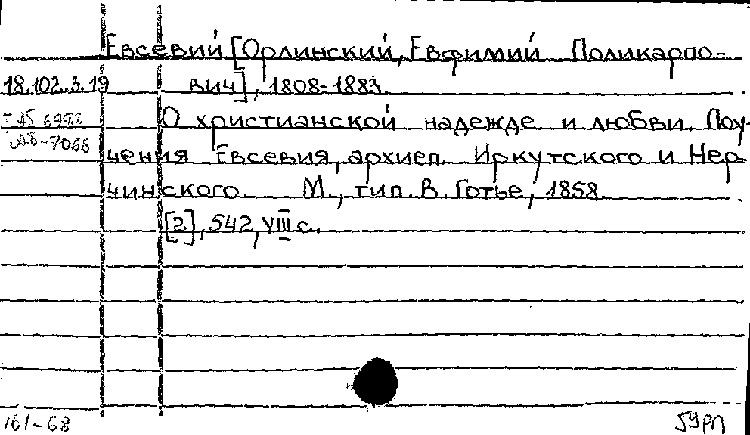 Евсевий [Орлинский, Евфимий Поликарпо-
18.102.3.19 вич], 1808-1883.
О христианской надежде и любви. Поу-
чения Евсевия, архиеп. Иркутского и Нер-
чинского. М., тип. В. Готье, 1858
[2], 542, VIII с.
161-68
59РП